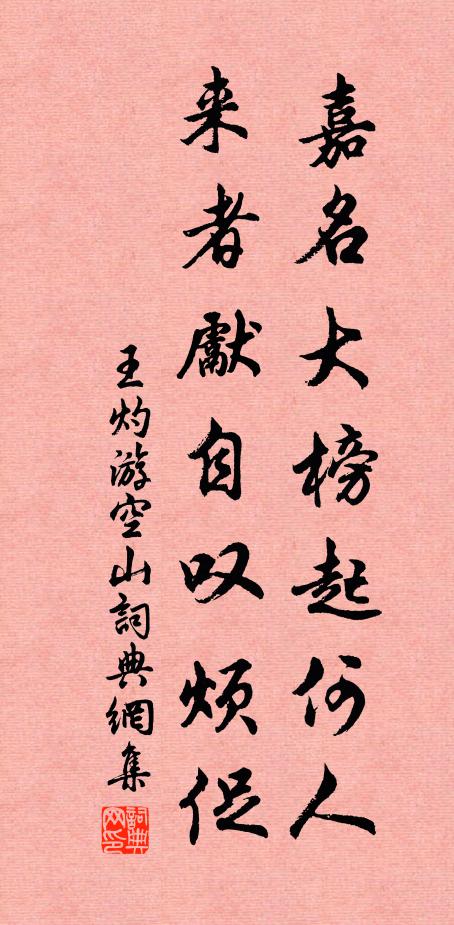 嘉名大榜起何人
来者献自叹烦促
王灼游空山詞典網集
詞典网印